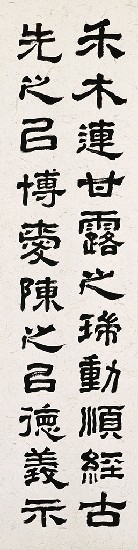 禾木連甘露之瑞動順經古
先之以博愛陳之以德義示